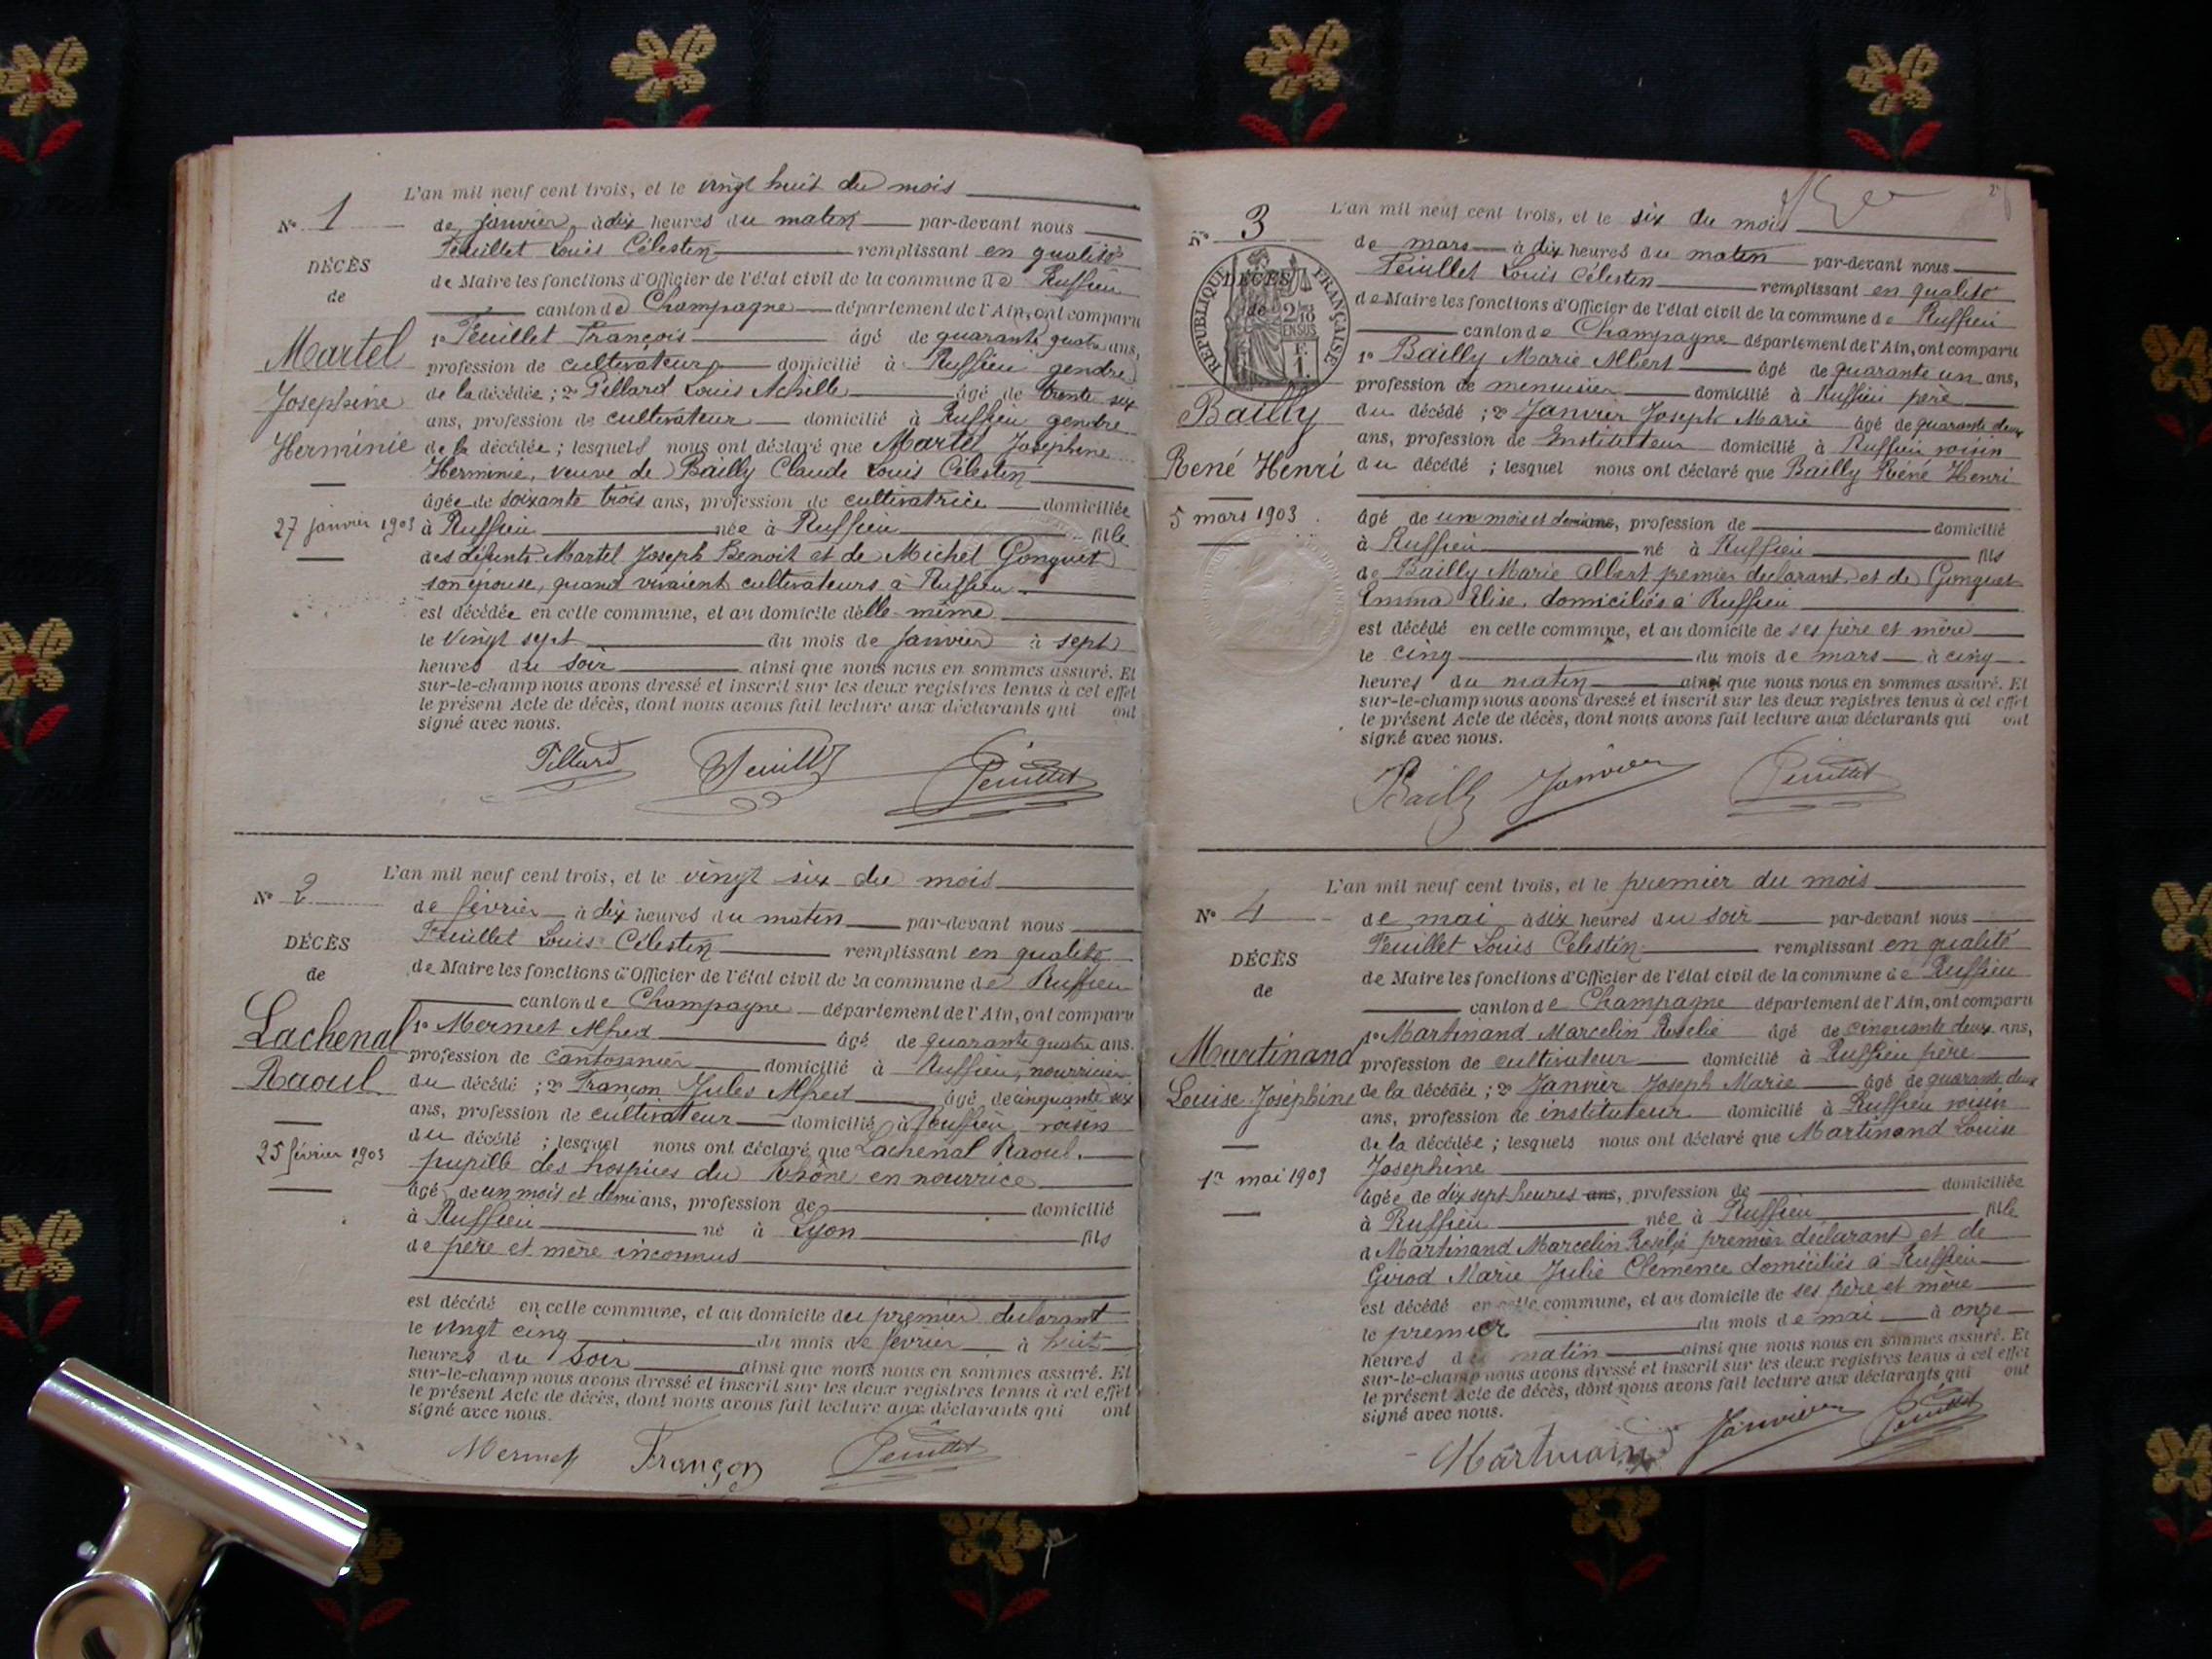 L'an mil neuf cent trois, et le vingt huit du mois
N° 1
de janvier, à dix heures du matin par-devant nous
Feuillet Louis Célestin remplissant en qualité
DÉCÈS
de Maire les fonctions d'Officier de l'état civil de la commune de Ruffieu
de
canton de Champagne département de l'Ain, ont comparu
Martel
1° Feuillet François âgé de quarante quatre ans,
profession de cultivateur domicilié à Ruffieu gendre
Josephine
de la décédée ; 2° Tillard Louis Achille âgé de trente six
ans, profession de cultivateur domicilié à Ruffieu gendre
Herminie
de la décédée ; lesquels nous ont déclaré que Martel Josephine
Herminie, veuve de Bailly Claude Louis Célestin
âgée de soixante trois ans, profession de cultivatrice domiciliée
27 janvier 1903
à Ruffieu née à Ruffieu fille
des défunts Martel Joseph Benoit et de Michel Gonguet
son épouse, quand vivaient cultivateurs à Ruffieu
est décédée en cette commune, et au domicile d'elle-même
le vingt sept du mois de janvier à sept
heures du soir ainsi que nous nous en sommes assuré. Et
sur-le-champ nous avons dressé et inscrit sur les deux registres tenus à cet effet
le présent Acte de décès, dont nous avons fait lecture aux déclarants qui ont
signé avec nous.
Tillard Feuillet Feuillet
L'an mil neuf cent trois, et le vingt six du mois
N° 2
de février à dix heures du matin par-devant nous
Feuillet Louis Célestin remplissant en qualité
DÉCÈS
de Maire les fonctions d'Officier de l'état civil de la commune de Ruffieu
de
canton de Champagne département de l'Ain, ont comparu
Lachenal
1° Mermet Alfred âgé de quarante quatre ans.
profession de cantonnier domicilié à Ruffieu, nourricier
Raoul
du décédé ; 2° Françon Jules Alfred âgé de cinquante six
ans, profession de cultivateur domicilié à Ruffieu, voisin
du décédé ; lesquel nous ont déclaré que Lachenal Raoul.
25 février 1903
pupille des hospices du Rhône en nourrice
âgé de un mois et demi ans, profession de domicilié
à Ruffieu né à Lyon fils
de père et mère inconnus
est décédé en cette commune, et au domicile du premier déclarant
le vingt cinq du mois de février à huit
heures du soir ainsi que nous nous en sommes assuré. Et
sur-le-champ nous avons dressé et inscrit sur les deux registres tenus à cet effet
le présent Acte de décès, dont nous avons fait lecture aux déclarants qui ont
signé avec nous.
Mermet Françon Feuillet
L'an mil neuf cent trois, et le six du mois
N° 3
de mars à dix heures du matin par-devant nous
Feuillet Louis Célestin remplissant en qualité
DÉCÈS
de
RÉPUBLIQUE FRANÇAISE
de Maire les fonctions d'Officier de l'état civil de la commune de Ruffieu
canton de Champagne département de l'Ain, ont comparu
1° Bailly Marie Albert âgé de quarante un ans,
profession de menuisier domicilié à Ruffieu père
Bailly
du décédé ; 2° Janvier Joseph Marie âgé de quarante deux
ans, profession de Instituteur domicilié à Ruffieu voisin
René Henri
du décédé ; lesquel nous ont déclaré que Bailly Réné Henri
5 mars 1903
âgé de un mois et demi ans, profession de domicilié
à Ruffieu né à Ruffieu fils
de Bailly Marie Albert premier declarant et de Gonguet
Emma Elise, domiciliés à Ruffieu
est décédé en cette commune, et au domicile de ses père et mère
le cinq du mois de mars à cinq
heures du matin ainsi que nous nous en sommes assuré. Et
sur-le-champ nous avons dressé et inscrit sur les deux registres tenus à cet effet
le présent Acte de décès, dont nous avons fait lecture aux déclarants qui ont
signé avec nous.
Bailly Janvier Feuillet
L'an mil neuf cent trois, et le premier du mois
N° 4
de mai à six heures du soir par-devant nous
Feuillet Louis Célestin remplissant en qualité
DÉCÈS
de Maire les fonctions d'Officier de l'état civil de la commune de Ruffieu
de
canton de Champagne département de l'Ain, ont comparu
Martinand
1° Martinand Marcelin Roselie âgé de cinquante deux ans,
profession de cultivateur domicilié à Ruffieu père
Louise Joséphine
de la décédée ; 2° Janvier Joseph Marie âgé de quarante deux
ans, profession de instituteur domicilié à Ruffieu voisin
de la décédée ; lesquels nous ont déclaré que Martinand Louise
1er mai 1903
Josephine
âgée de dix sept heures ans, profession de domiciliée
à Ruffieu née à Ruffieu fille
d Martinand Marcelin Roselie premier déclarant et de
Girod Marie Julie Clemence domiciliés à Ruffieu
est décédé en cette commune, et au domicile de ses père et mère
le premier du mois de mai à onze
heures du matin ainsi que nous nous en sommes assuré. Et
sur-le-champ nous avons dressé et inscrit sur les deux registres tenus à cet effet
le présent Acte de décès, dont nous avons fait lecture aux déclarants qui ont
signé avec nous.
Martinand Janvier Feuillet